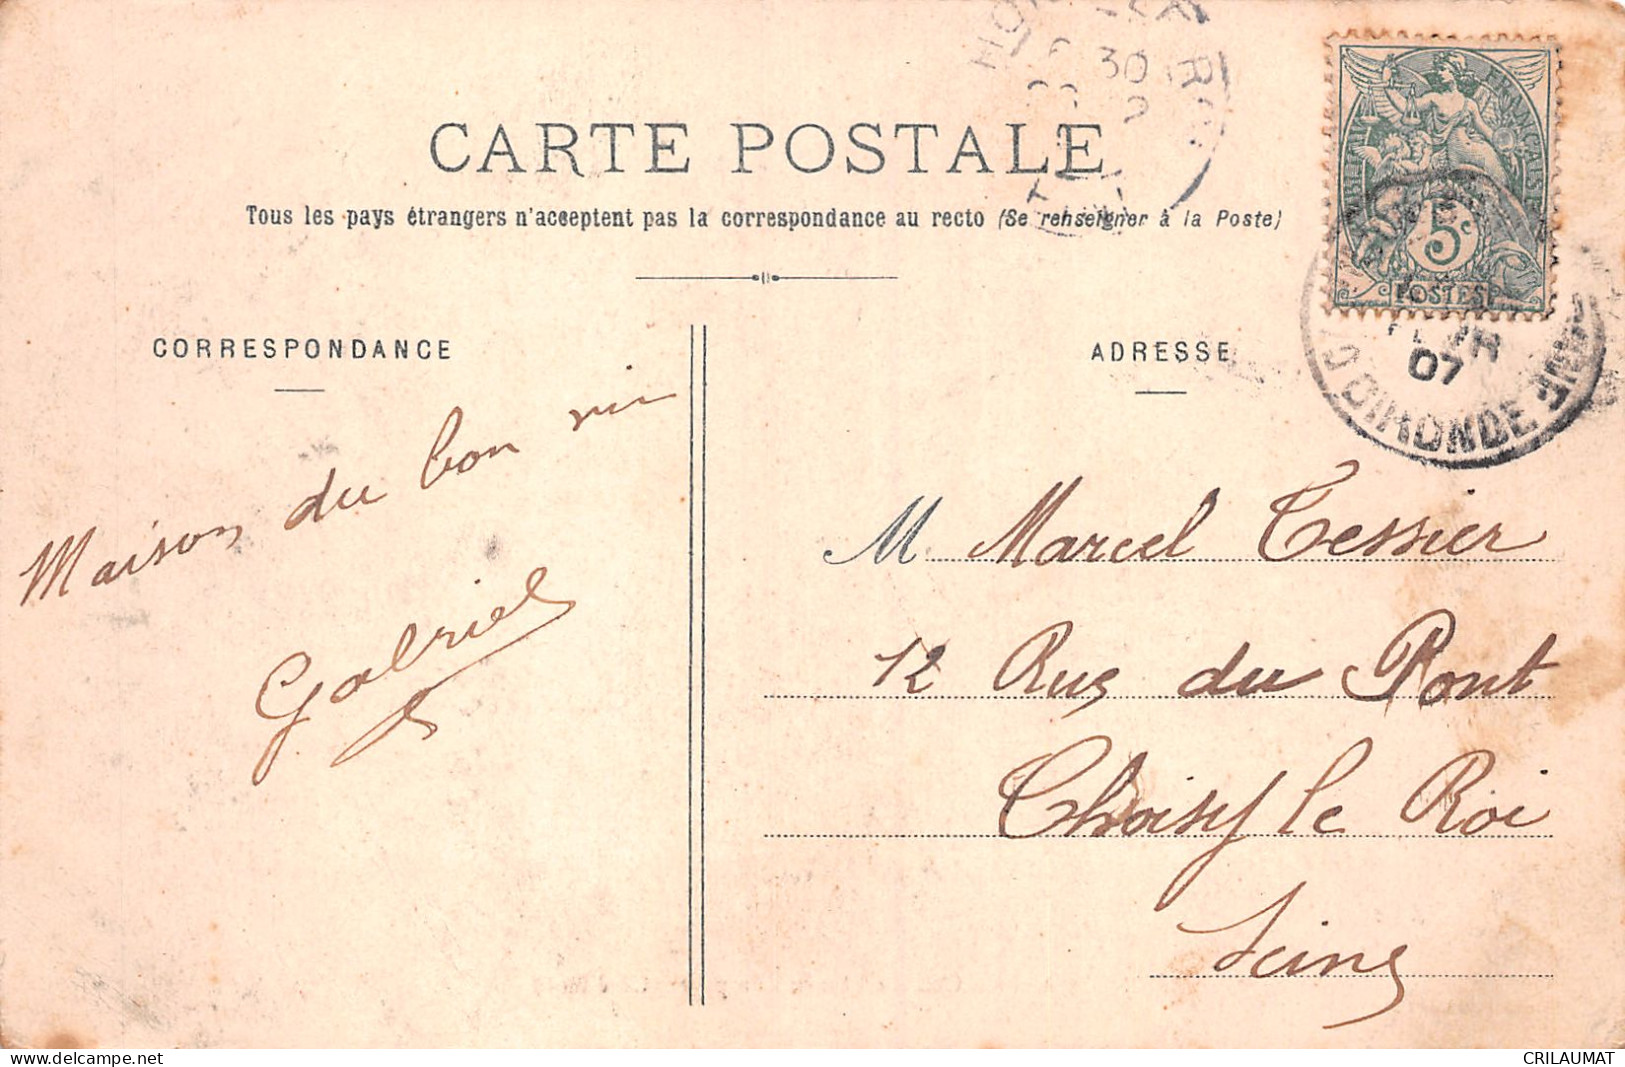 CARTE POSTALE
Tous les pays étrangers n'acceptent pas la correspondance au recto (Se renseigner à la Poste)
CORRESPONDANCE
Maison du bon
Gabriel
ADRESSE
M Marcel Tessier
12 Rue du Pont
Choisy le Roi
Seine
RÉPUBLIQUE FRANÇAISE
5c
POSTES
30
07
GIRONDE
CRILAUMAT